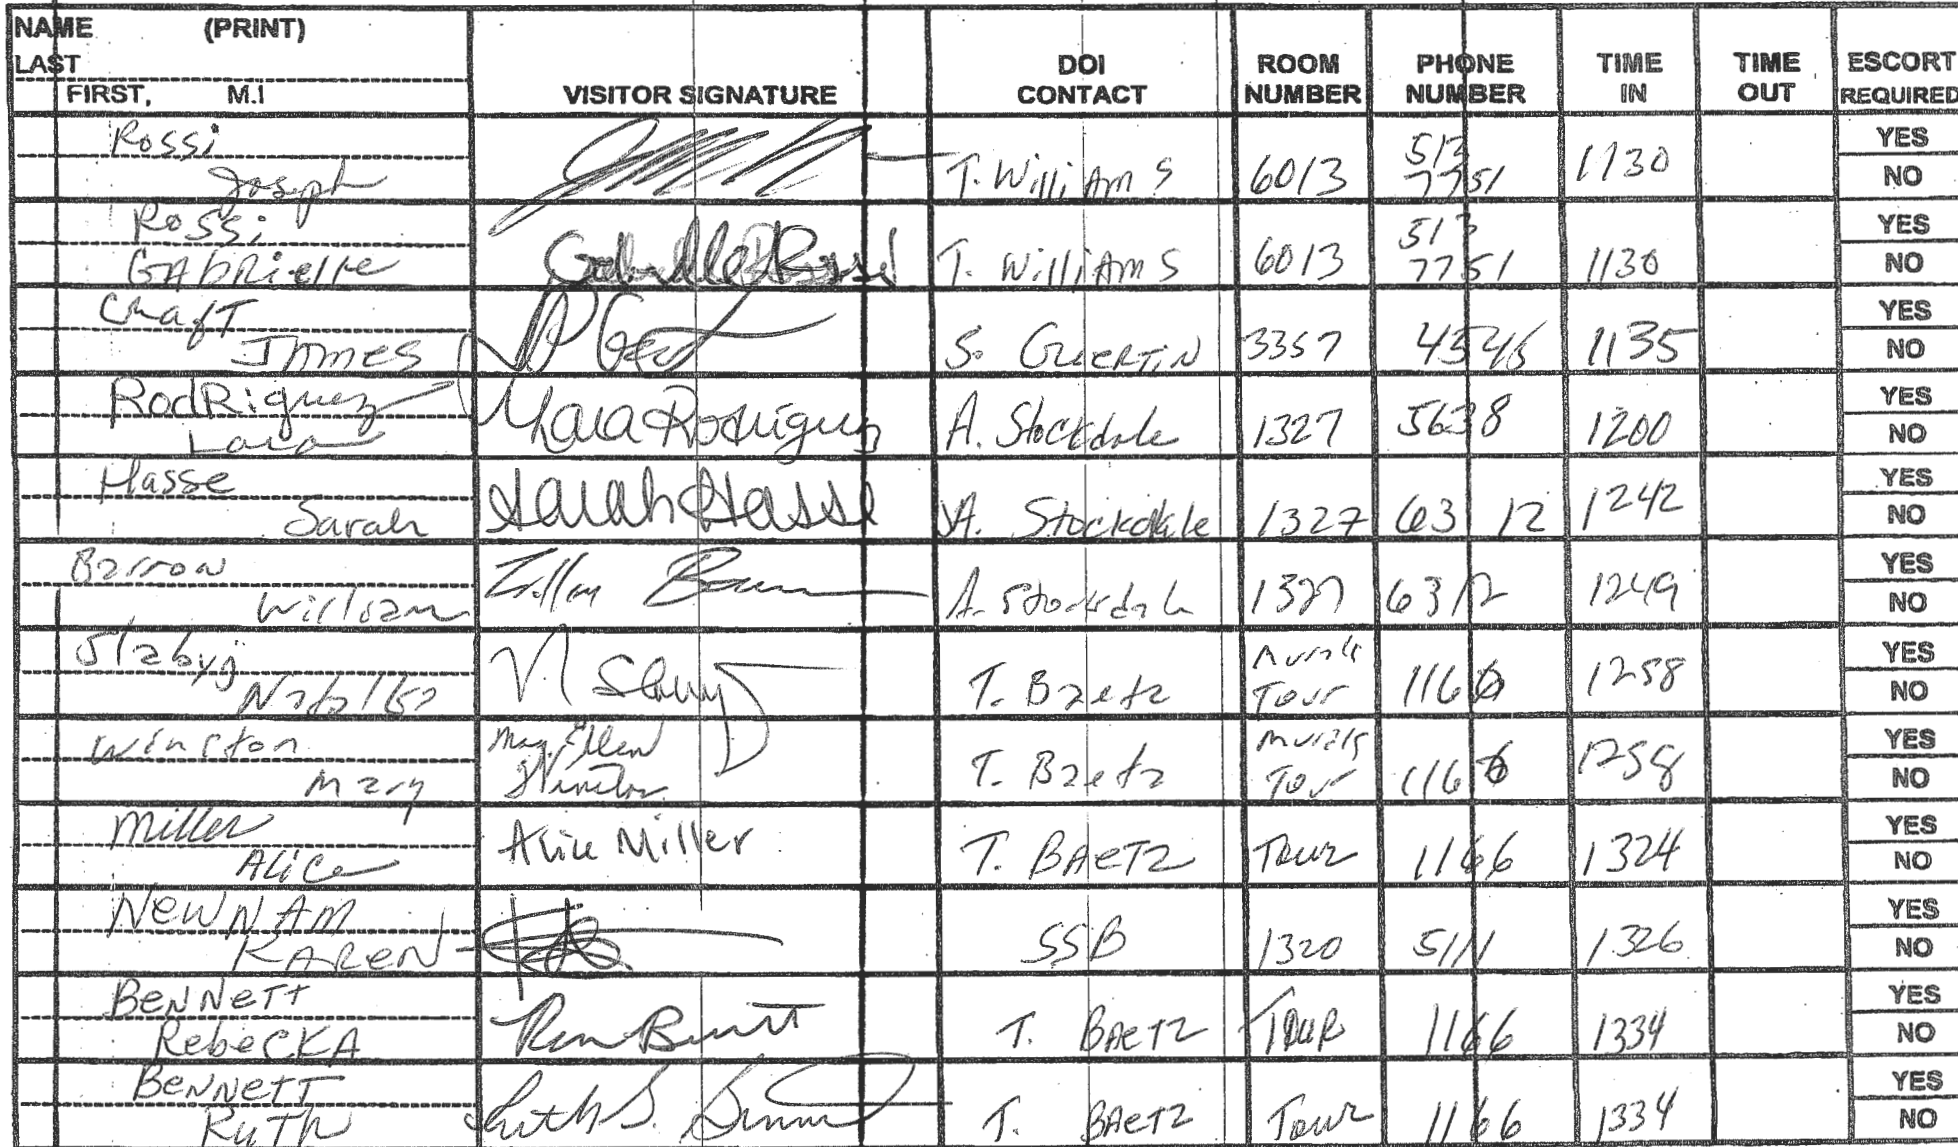 NAME (PRINT)
LAST
FIRST, M.I
VISITOR SIGNATURE
DOI CONTACT
ROOM NUMBER
PHONE NUMBER
TIME IN
TIME OUT
ESCORT REQUIRED
Rossi Joseph T. Williams 6013 513 7751 1130 YES NO
Rossi Gabrielle Gabrielle Rossi T. Williams 6013 513 7751 1130 YES NO
James S. Guertin 3357 1135 YES NO
Rodriguez Lara Lara Rodriguez A. Stockdale 1327 5638 1200 YES NO
Hasse Sarah Sarah Hasse A. Stockdale 1327 63 12 1242 YES NO
Barrow William A. Stockdale 1327 6312 1249 YES NO
T. Baetz Murals Tour 1166 1258 YES NO
Winston Mary Mary Ellen Winston T. Baetz Murals Tour 1166 1258 YES NO
Miller Alice Alice Miller T. Baetz Tour 1166 1324 YES NO
Newnam Karen SSB 1320 5111 1326 YES NO
Bennett Rebecka T. Baetz Tour 1166 1334 YES NO
Bennett Ruth Ruth S. Bennett T. Baetz Tour 1166 1334 YES NO